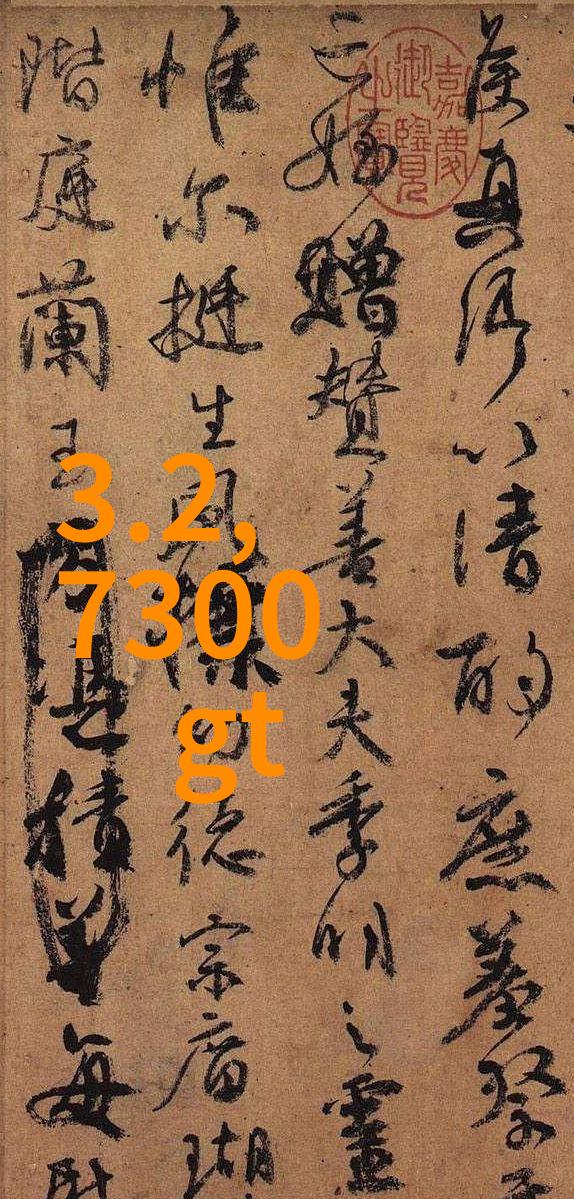 侯真卿以清酌庶羞祭于
亡姪贈贊善大夫季明之靈
惟尔挺生夙標幼德宗廟瑚
階庭蘭玉積善每慰
嘉慶御覽之寶
3.2,
7300
gt